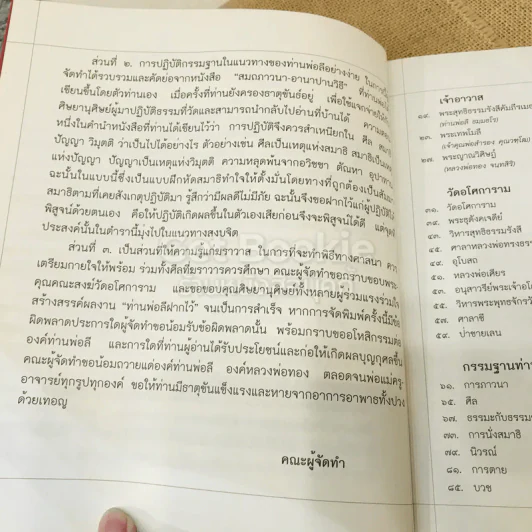 ส่วนที่ ๒. การปฏิบัติกรรมฐานในแนวทางของท่านพ่อลีอย่างง่าย ในการนี้
จัดทำได้รวบรวมและคัดย่อจากหนังสือ "สมถภาวนา-อานาปานวิธี" ที่ท่านพ่อ
เขียนขึ้นโดยตัวท่านเอง เมื่อครั้งที่ท่านยังครองธาตุขันธ์อยู่ เพื่อใช้แจกจ่ายให้
ศิษยานุศิษย์ผู้มาปฏิบัติธรรมที่วัดและสามารถนำกลับไปอ่านที่บ้านได้
หนึ่งในคำนำหนังสือที่ท่านได้เขียนไว้ว่า การปฏิบัติจึงควรสำเหนียกใน ศีล สมาธิ
ปัญญา วิมุตติ ว่าเป็นไปได้อย่างไร ตัวอย่างเช่น ศีลเป็นเหตุแห่งสมาธิ สมาธิเป็นเหตุ
แห่งปัญญา ปัญญาเป็นเหตุแห่งวิมุตติ ความหลุดพ้นจากอวิชชา ตัณหา
ฉะนั้นในแบบนี้ซึ่งเป็นแบบฝึกหัดสมาธิทำใจให้ตั้งมั่นโดยทางที่ถูกต้องเป็น
สมาธิตามที่เคยสังเกตุปฏิบัติมา รู้สึกว่ามีผลดีไม่มีภัย ฉะนั้นจึงขอฝากไว้แก่ผู้ปฏิบัติ
พิสูจน์ด้วยตนเอง คือให้ปฏิบัติเกิดผลขึ้นในตัวเองเสียก่อนจึงจะพิสูจน์ได้ดี
ประสงค์นั้นในตำรานี้มุ่งไปในแนวทางสงบจิต
ส่วนที่ ๓. เป็นส่วนที่ให้ความรู้แก่ฆราวาส ในการที่จะทำพิธีทางศาสนา
เตรียมกายใจให้พร้อม รวมทั้งศีลที่ฆราวาสควรศึกษา คณะผู้จัดทำขอกราบขอบพระ
คุณคณะสงฆ์วัดอโศการาม และขอขอบคุณศิษยานุศิษย์ทั้งหลายผู้ร่วมแรงร่วมใจ
สร้างสรรค์ผลงาน "ท่านพ่อลีฝากไว้" จนเป็นการสำเร็จ หากการจัดพิมพ์ครั้งนี้มีข้อ
ผิดพลาดประการใดผู้จัดทำขอน้อมรับข้อผิดพลาดนั้น พร้อมกราบขออโหสิกรรมต่อ
องค์ท่านพ่อลี และการใดที่ท่านผู้อ่านได้รับประโยชน์และก่อให้เกิดผลบุญกุศลขึ้น
คณะผู้จัดทำขอน้อมถวายแด่องค์ท่านพ่อลี องค์หลวงพ่อทอง ตลอดจนพ่อแม่ครู-
อาจารย์ทุกรูปทุกองค์ ขอให้ท่านมีธาตุขันแข็งแรงและหายจากอาการอาพาธทั้งปวง
ด้วยเทอญ
คณะผู้จัดทำ
เจ้าอาวาส
๑๙. พระสุทธิธรรมรังสีคัมภีรเม
(ท่านพ่อลี ธมมธโร)
๒๓. พระเทพโมลี
(เจ้าคุณพ่อสำรอง คุณวุฑโฒ)
๒๗. พระญาณวิศิษฏ์
(หลวงพ่อทอง จนทสิริ)
วัดอโศการาม
๓๑. วัดอโศการาม
๓๙. พระธุตังคเจดีย์
๔๓. วิหารสุทธิธรรมรังสี
๔๕. ศาลาหลวงพ่อทรงธรร
๔๙. อุโบสถ
๕๑. หลวงพ่อเศียร
๕๓. อนุสาวรีย์พระเจ้าอโ
๕๕. วิหารพระพุทธจักรวั
๕๗. ศาลาชี
๕๙. ป่าชายเลน
กรรมฐานท่าน
๖๑. การภาวนา
๖๕. ศีล
๖๗. ธรรมะกับธรรม
๗๓. การนั่งสมาธิ
๗๙. นิวรณ์
๘๑. การตาย
๘๕. บวช